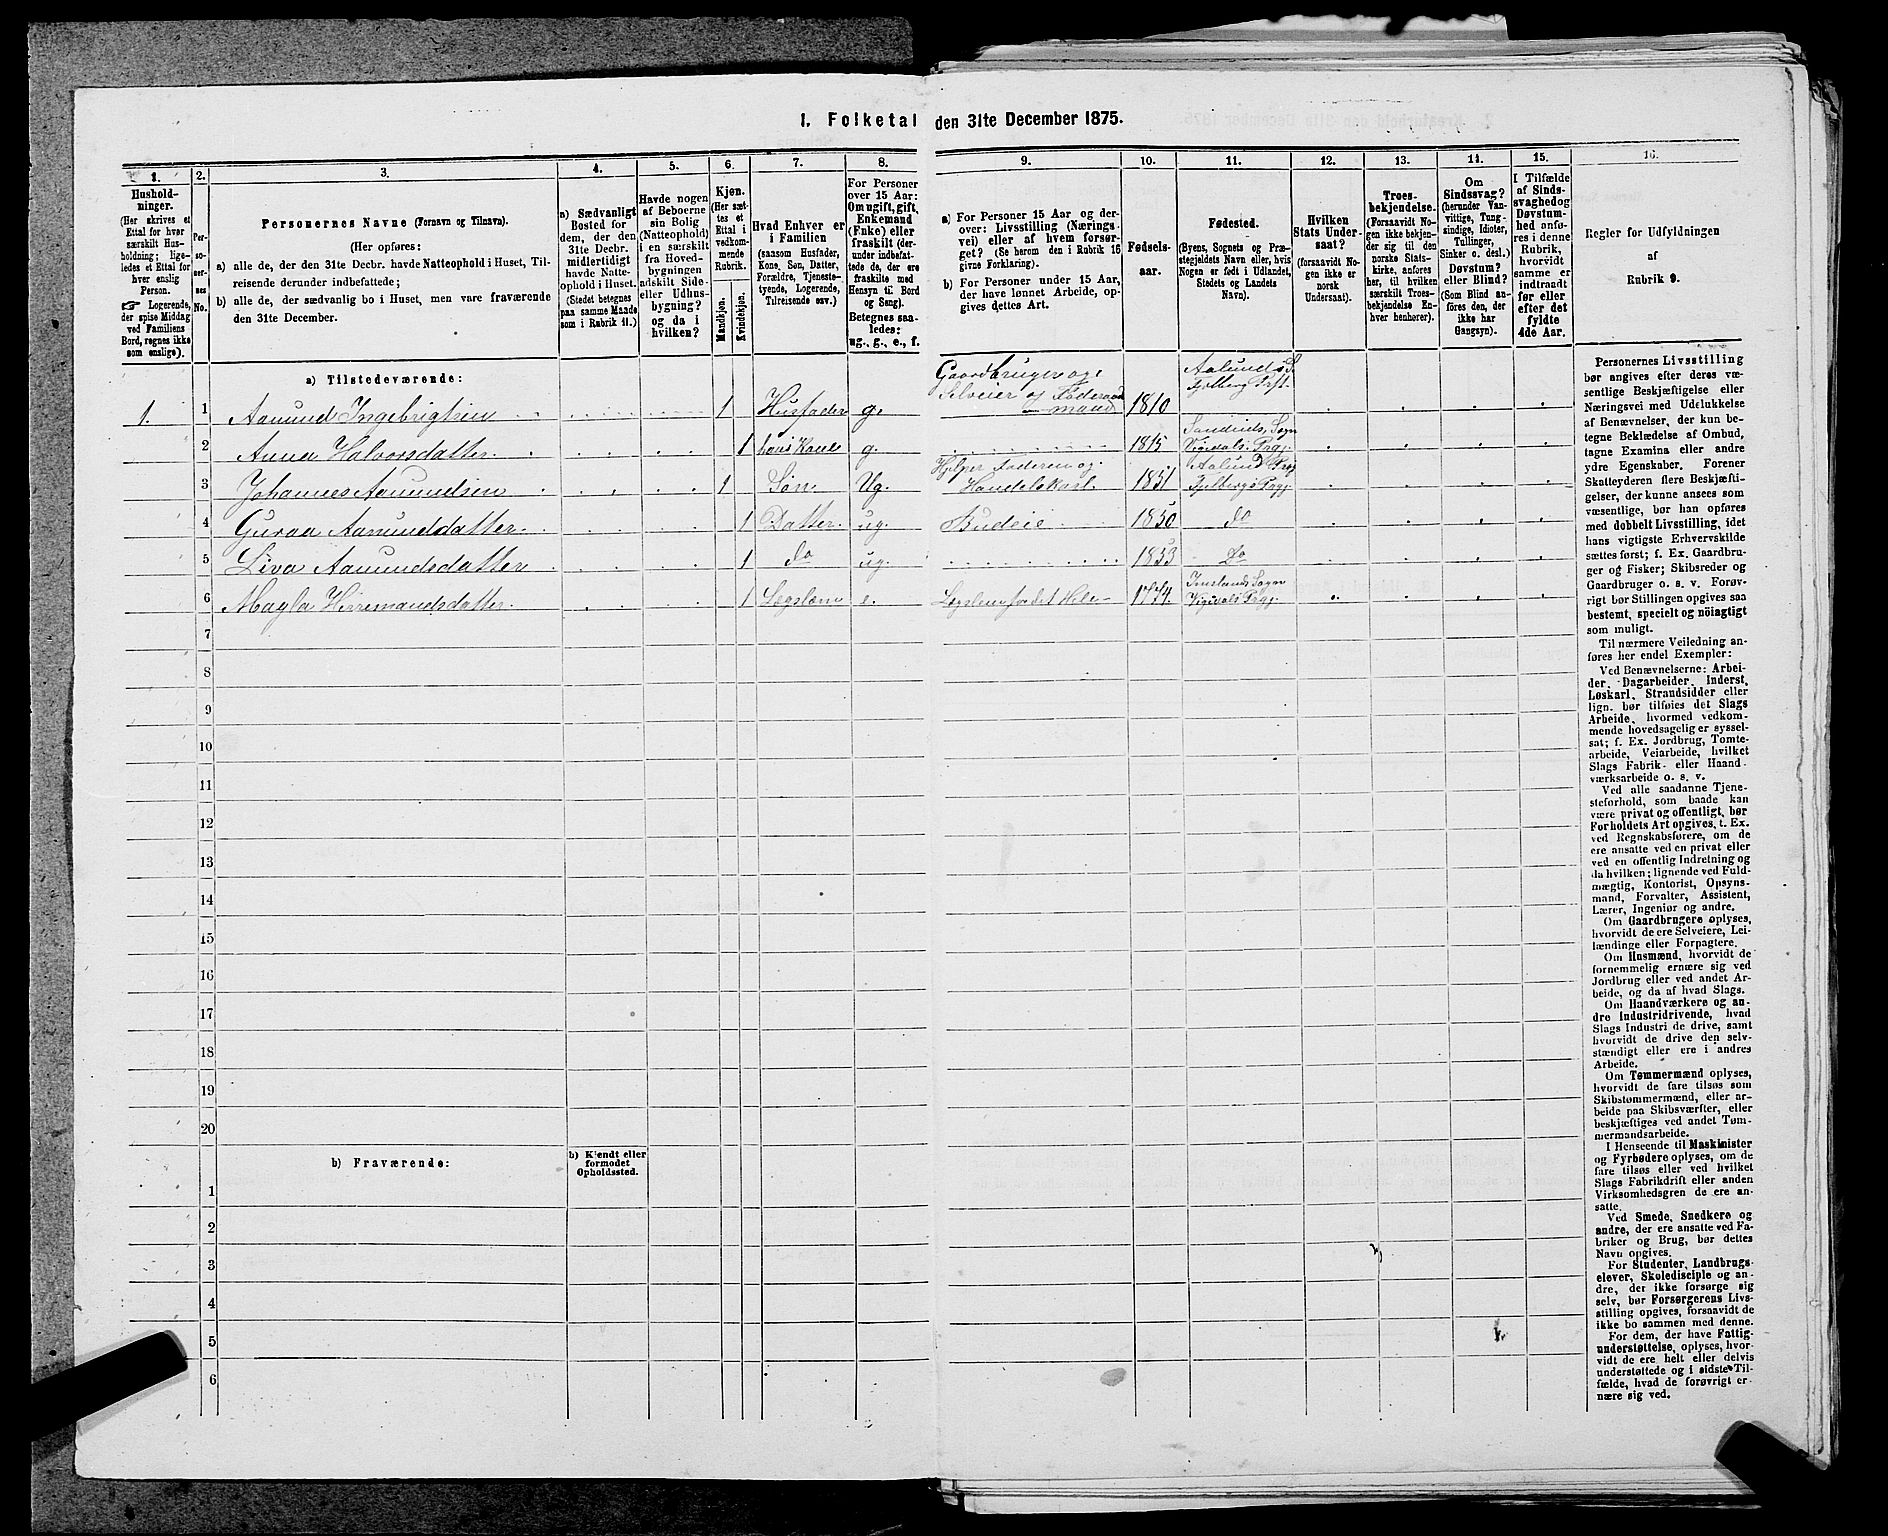 1. Folketal den 31te December 1875.
1.
2.
3.
4.
5.
6.
7.
8.
9.
10.
11.
12.
13.
14.
15.
16.
Hushold-
ninger.
(Her skrives et
Ettal for hver
særskilt Hus-
holdning; lige-
ledes et Ettal for
hver enslig
Person.
☞ Logerende,
der spise Middag
ved Familiens
Bord, regnes ikke
som enslige).
Per-
so-
ner-
nes
No.
Personernes Navne (Fornavn og Tilnavn).
(Her opføres:
a) alle de, der den 31te Decbr. havde Natteophold i Huset, Til-
reisende derunder indbefattede;
b) alle de, der sædvanlig bo i Huset, men vare fraværende
den 31te December.
a) Sædvanligt
Bosted for
dem, der den
31te Decbr.
midlertidigt
havde Natte-
ophold i Huset.
(Stedet betegnes
paa samme Maade
som i Rubrik 11.)
Havde nogen
af Beboerne
sin Bolig
(Natteophold)
i en særskilt
fra Hoved-
bygningen
adskilt Side-
eller Udhus-
bygning?
og da i
hvilken?
Kjøn.
(Her sæt-
tes et
Ettal i
vedkom-
mende
Rubrik.
Mandkjøn.
Kvindekjøn.
Hvad Enhver er
i Familien
(saasom Husfader,
Kone, Søn, Datter,
Forældre, Tjeneste-
tyende, Logerende,
Tilreisende osv.)
For Personer
over 15 Aar:
Om ugift, gift,
Enkemand
(Enke) eller
fraskilt (der-
under indbefat-
tede de, der ere
fraskilte med
Hensyn til Bord
og Seng).
Betegnes saa-
ledes:
ug., g., e., f.
a) For Personer 15 Aar og der-
over: Livsstilling (Nærings-
vei) eller af hvem forsør-
get? (Se herom den i Rubrik 16
givne Forklaring).
b) For Personer under 15 Aar,
der have lønnet Arbeide, op-
gives dettes Art.
Fødsels-
aar.
Fødested.
(Byens, Sognets og Præ-
stegjeldets Navn eller, hvis
Nogen er født i Udlandet,
Stedets og Landets
Navn).
Hvilken
Stats Under-
saat?
(forsaavidt No-
gen ikke er
norsk
Undersaat).
Troes-
bekjendelse.
(Forsaavidt No-
gen ikke bekjen-
der sig til den
norske Stats-
kirke, anføres
her, til hvilken
særskilt Troes-
bekjendelse En-
hver henhører).
Om
Sindssvag?
(herunder Van-
vittige, Tung-
sindige, Idioter,
Tullinger,
Sinker o. desl.)
Døvstum?
eller Blind?
(Som Blind an-
føres den, der
ikke har
Gangsyn).
I Tilfælde
af Sinds-
svaghed og
Døvstum-
hed anfø-
res i denne
Rubrik,
hvorvidt
samme er
indtraadt
før eller
efter det
fyldte
4de Aar.
Regler for Udfyldningen
af
Rubrik 9.
a) Tilstedeværende:
1. 1 Aamund Ingebrigtsen 1 Husfader g. Gaardbruger og Selveier og Føderaadsmand 1810
2 Anna Halvorsdatter 1 hans Kone g. 1815 Sandeids Sogn Vigedals Prgj.
3 Johannes Aamundsen 1 Søn Ug. Hjelper Faderen og Handelskarl 1851
4 Guroa Aamundsdatter 1 Datter ug. Budeie 1850 do
5 Liva Aamundsdatter 1 do ug. 1853 Do
6 Magla 1 Lægslæm e. 1774. Imslands Sogn Vigedals Prgj.
7
8
9
10
11
12
13
14
15
16
17
18
19
20
b) Fraværende:
b) Kjendt eller
formodet
Opholdssted.
1
2
3
4
5
6
Personernes Livsstilling
bør angives efter deres væ-
sentlige Beskjæftigelse eller
Næringsvei med Udelukkelse
af Benævnelser, der kun be-
tegne Beklædelse af Ombud,
tagne Examina eller andre
ydre Egenskaber. Forener
Skatteyderen flere Beskjæfti-
gelser, der kunne ansees som
væsentlige, bør han opføres
med dobbelt Livsstilling, idet
hans vigtigste Erhvervskilde
sættes først; f. Ex. Gaardbru-
ger og Fisker; Skibsreder og
Gaardbruger o. s. v. Forøv-
rigt bør Stillingen opgives saa
bestemt, specielt og nöiagtigt
som muligt.
Til nærmere Veiledning an-
føres her endel Exempler:
Ved Benævnelserne: Arbei-
der, Dagarbeider, Inderst,
Løskarl, Strandsidder eller
lign. bør tilføies det Slags
Arbeide, hvormed vedkom-
mende hovedsagelig er syssel-
sat; f. Ex. Jordbrug, Tomte-
arbeide, Veiarbeide, hvilket
Slags Fabrik- eller Haand-
værksarbeide o. s. v.
Ved alle saadanne Tjene-
steforhold, som baade kan
være privat og offentligt, bør
Forholdets Art opgives, t. Ex.
ved Regnskabsførere, om de
ere ansatte ved en privat eller
ved en offentlig Indretning og
da hvilken; lignende ved Fuld-
mægtig, Kontorist, Opsyns-
mand, Forvalter, Assistent,
Lærer, Ingeniør og andre.
Om Gaardbrugere oplyses,
hvorvidt de ere Selveiere, Lei-
lændinge eller Forpagtere.
Om Husmænd, hvorvidt de
fornemmelig ernære sig ved
Jordbrug eller ved andet Ar-
beide, og da af hvad Slags.
Om Haandværkere og an-
dre Industridrivende, hvad
Slags Industri de drive, samt
hvorvidt de drive den selv-
stændigt eller ere i andres
Arbeide.
Om Tømmermænd oplyses,
hvorvidt de fare tilsøs som
Skibstømmermænd, eller ar-
beide paa Skibsværfter, eller
beskjæftiges ved andet Tøm-
mermandsarbeide.
I Henseende til Maskinister
og Fyrbødere oplyses, om de
fare tilsøs eller ved hvilket
Slags Fabrikdrift eller anden
Virksomhedsgren de ere an-
satte.
Ved Smede, Snedkere og
andre, der ere ansatte ved Fa-
briker og Brug, bør dettes
Navn opgives.
For Studenter, Landbrugs-
elever, Skoledisciple og an-
dre, der ikke forsørge sig
selv, bør Forsørgerens Livs-
stilling opgives, forsaavidt de
ikke bo sammen med denne.
For dem, der have Fattig-
understøttelse, oplyses, hvor-
vidt de ere helt eller delvis
understøttede og i sidste Til-
fælde, hvad de forøvrigt er-
nære sig ved.